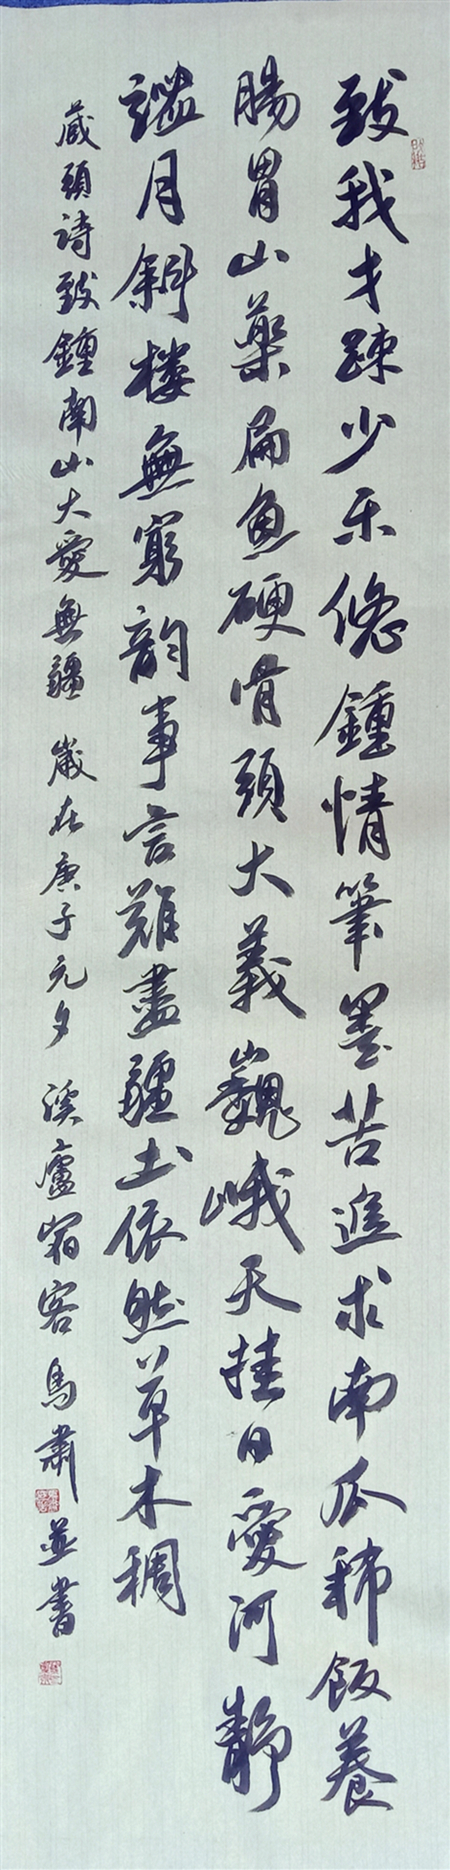 致我才疎少乐悠鍾情筆墨苦追求南瓜稀飯養
腸胃山藥扁魚硬骨頭大義巍峨天挂日愛河靜
謐月斜楼無窮韵事言難盡疆土依然草木稠
藏頭詩致鍾南山大愛無疆 歲在庚子元夕 溪廬宿客 馬肅並書